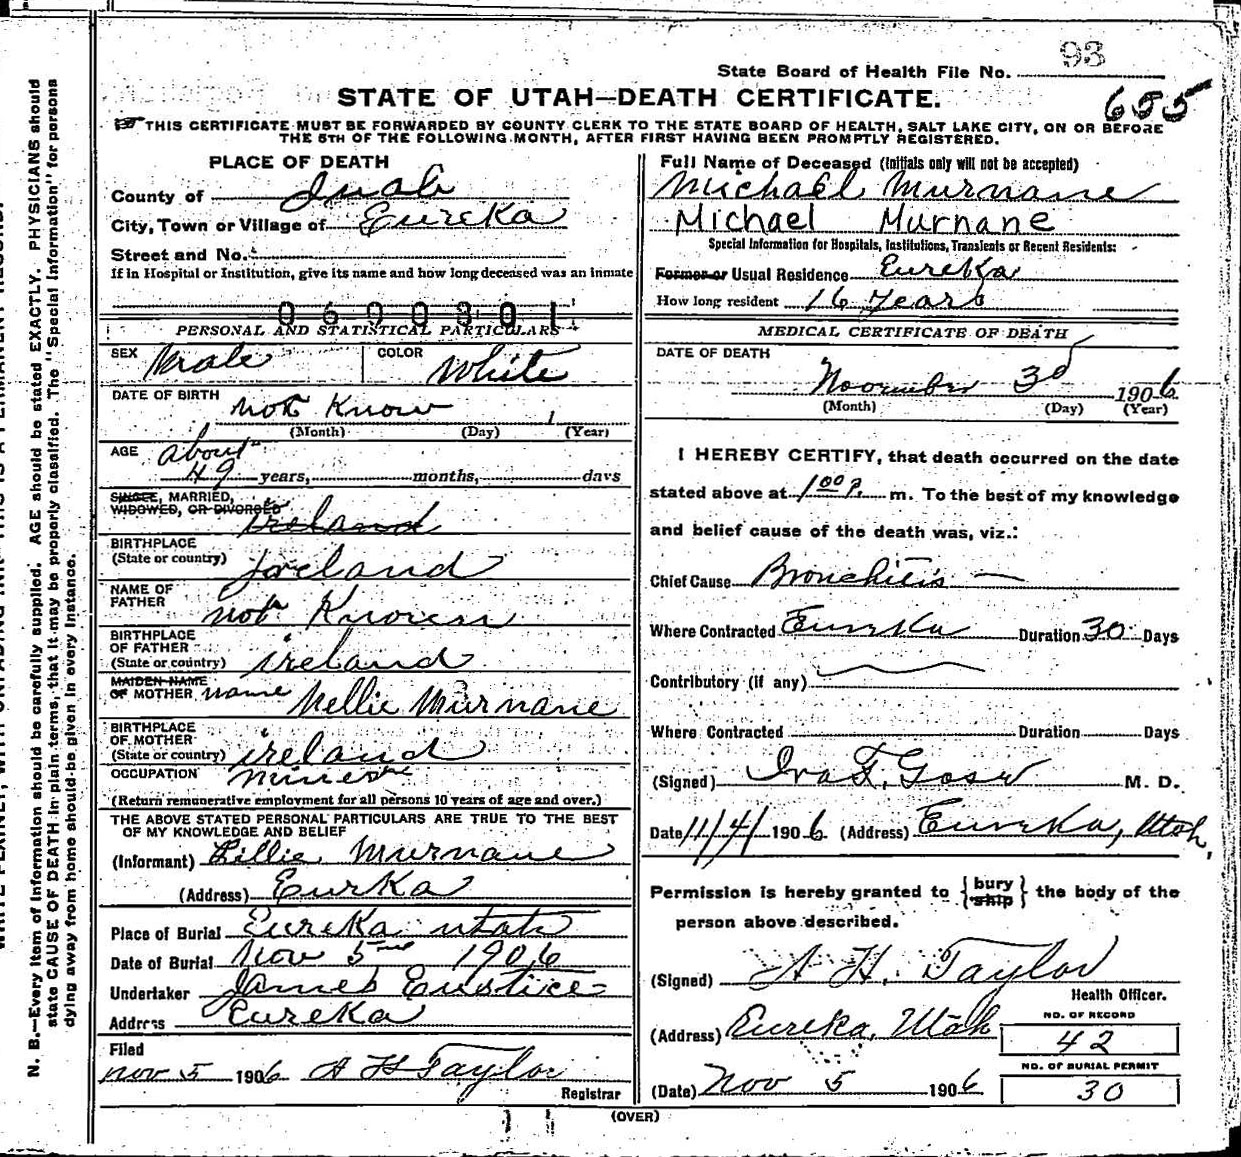 93
State Board of Health File No.
655
STATE OF UTAH—DEATH CERTIFICATE.
THIS CERTIFICATE MUST BE FORWARDED BY COUNTY CLERK TO THE STATE BOARD OF HEALTH, SALT LAKE CITY, ON OR BEFORE
THE 5TH OF THE FOLLOWING MONTH, AFTER FIRST HAVING BEEN PROMPTLY REGISTERED.
PLACE OF DEATH
County of Juab
City, Town or Village of Eureka
Street and No.
If in Hospital or Institution, give its name and how long deceased was an inmate
0600301
PERSONAL AND STATISTICAL PARTICULARS
SEX Male COLOR White
DATE OF BIRTH not Know 1
(Month) (Day) (Year)
AGE about
49 years, months, days
SINGLE, MARRIED,
WIDOWED, OR DIVORCED ireland
BIRTHPLACE
(State or country) Ireland
NAME OF
FATHER not Known
BIRTHPLACE
OF FATHER
(State or country) ireland
MAIDEN NAME
OF MOTHER name Nellie Murnane
BIRTHPLACE
OF MOTHER
(State or country) ireland
OCCUPATION
(Return remunerative employment for all persons 10 years of age and over.)
THE ABOVE STATED PERSONAL PARTICULARS ARE TRUE TO THE BEST
OF MY KNOWLEDGE AND BELIEF
(Informant) Lillie Murnane
(Address) Eurka
Place of Burial Eureka utah
Date of Burial Nov 5 1906
Undertaker James Eustice
Address Eureka
Filed
nov 5 1906 A H Taylor
Registrar
Full Name of Deceased (Initials only will not be accepted)
Michael Murnane
Michael Murnane
Special Information for Hospitals, Institutions, Transients or Recent Residents:
Former or Usual Residence Eureka
How long resident 16 years
MEDICAL CERTIFICATE OF DEATH
DATE OF DEATH
November 3d 1906
(Month) (Day) (Year)
I HEREBY CERTIFY, that death occurred on the date
stated above at 1 00 P. m. To the best of my knowledge
and belief cause of the death was, viz.:
Chief Cause Bronchitis —
Where Contracted Eureka Duration 30 Days
Contributory (if any)
Where Contracted Duration Days
(Signed) Ira F. M. D.
Date 11/4/ 1906 (Address) Eureka, Utah,
Permission is hereby granted to {bury
ship} the body of the
person above described.
(Signed) A H. Taylor
Health Officer.
(Address) Eureka, Utah
NO. OF RECORD
42
NO. OF BURIAL PERMIT
30
(Date) Nov 5 1906
(OVER)
N. B.—Every item of information should be carefully supplied. AGE should be stated EXACTLY. PHYSICIANS should
state CAUSE OF DEATH in plain terms, that it may be properly classified. The "Special Information" for persons
dying away from home should be given in every instance.